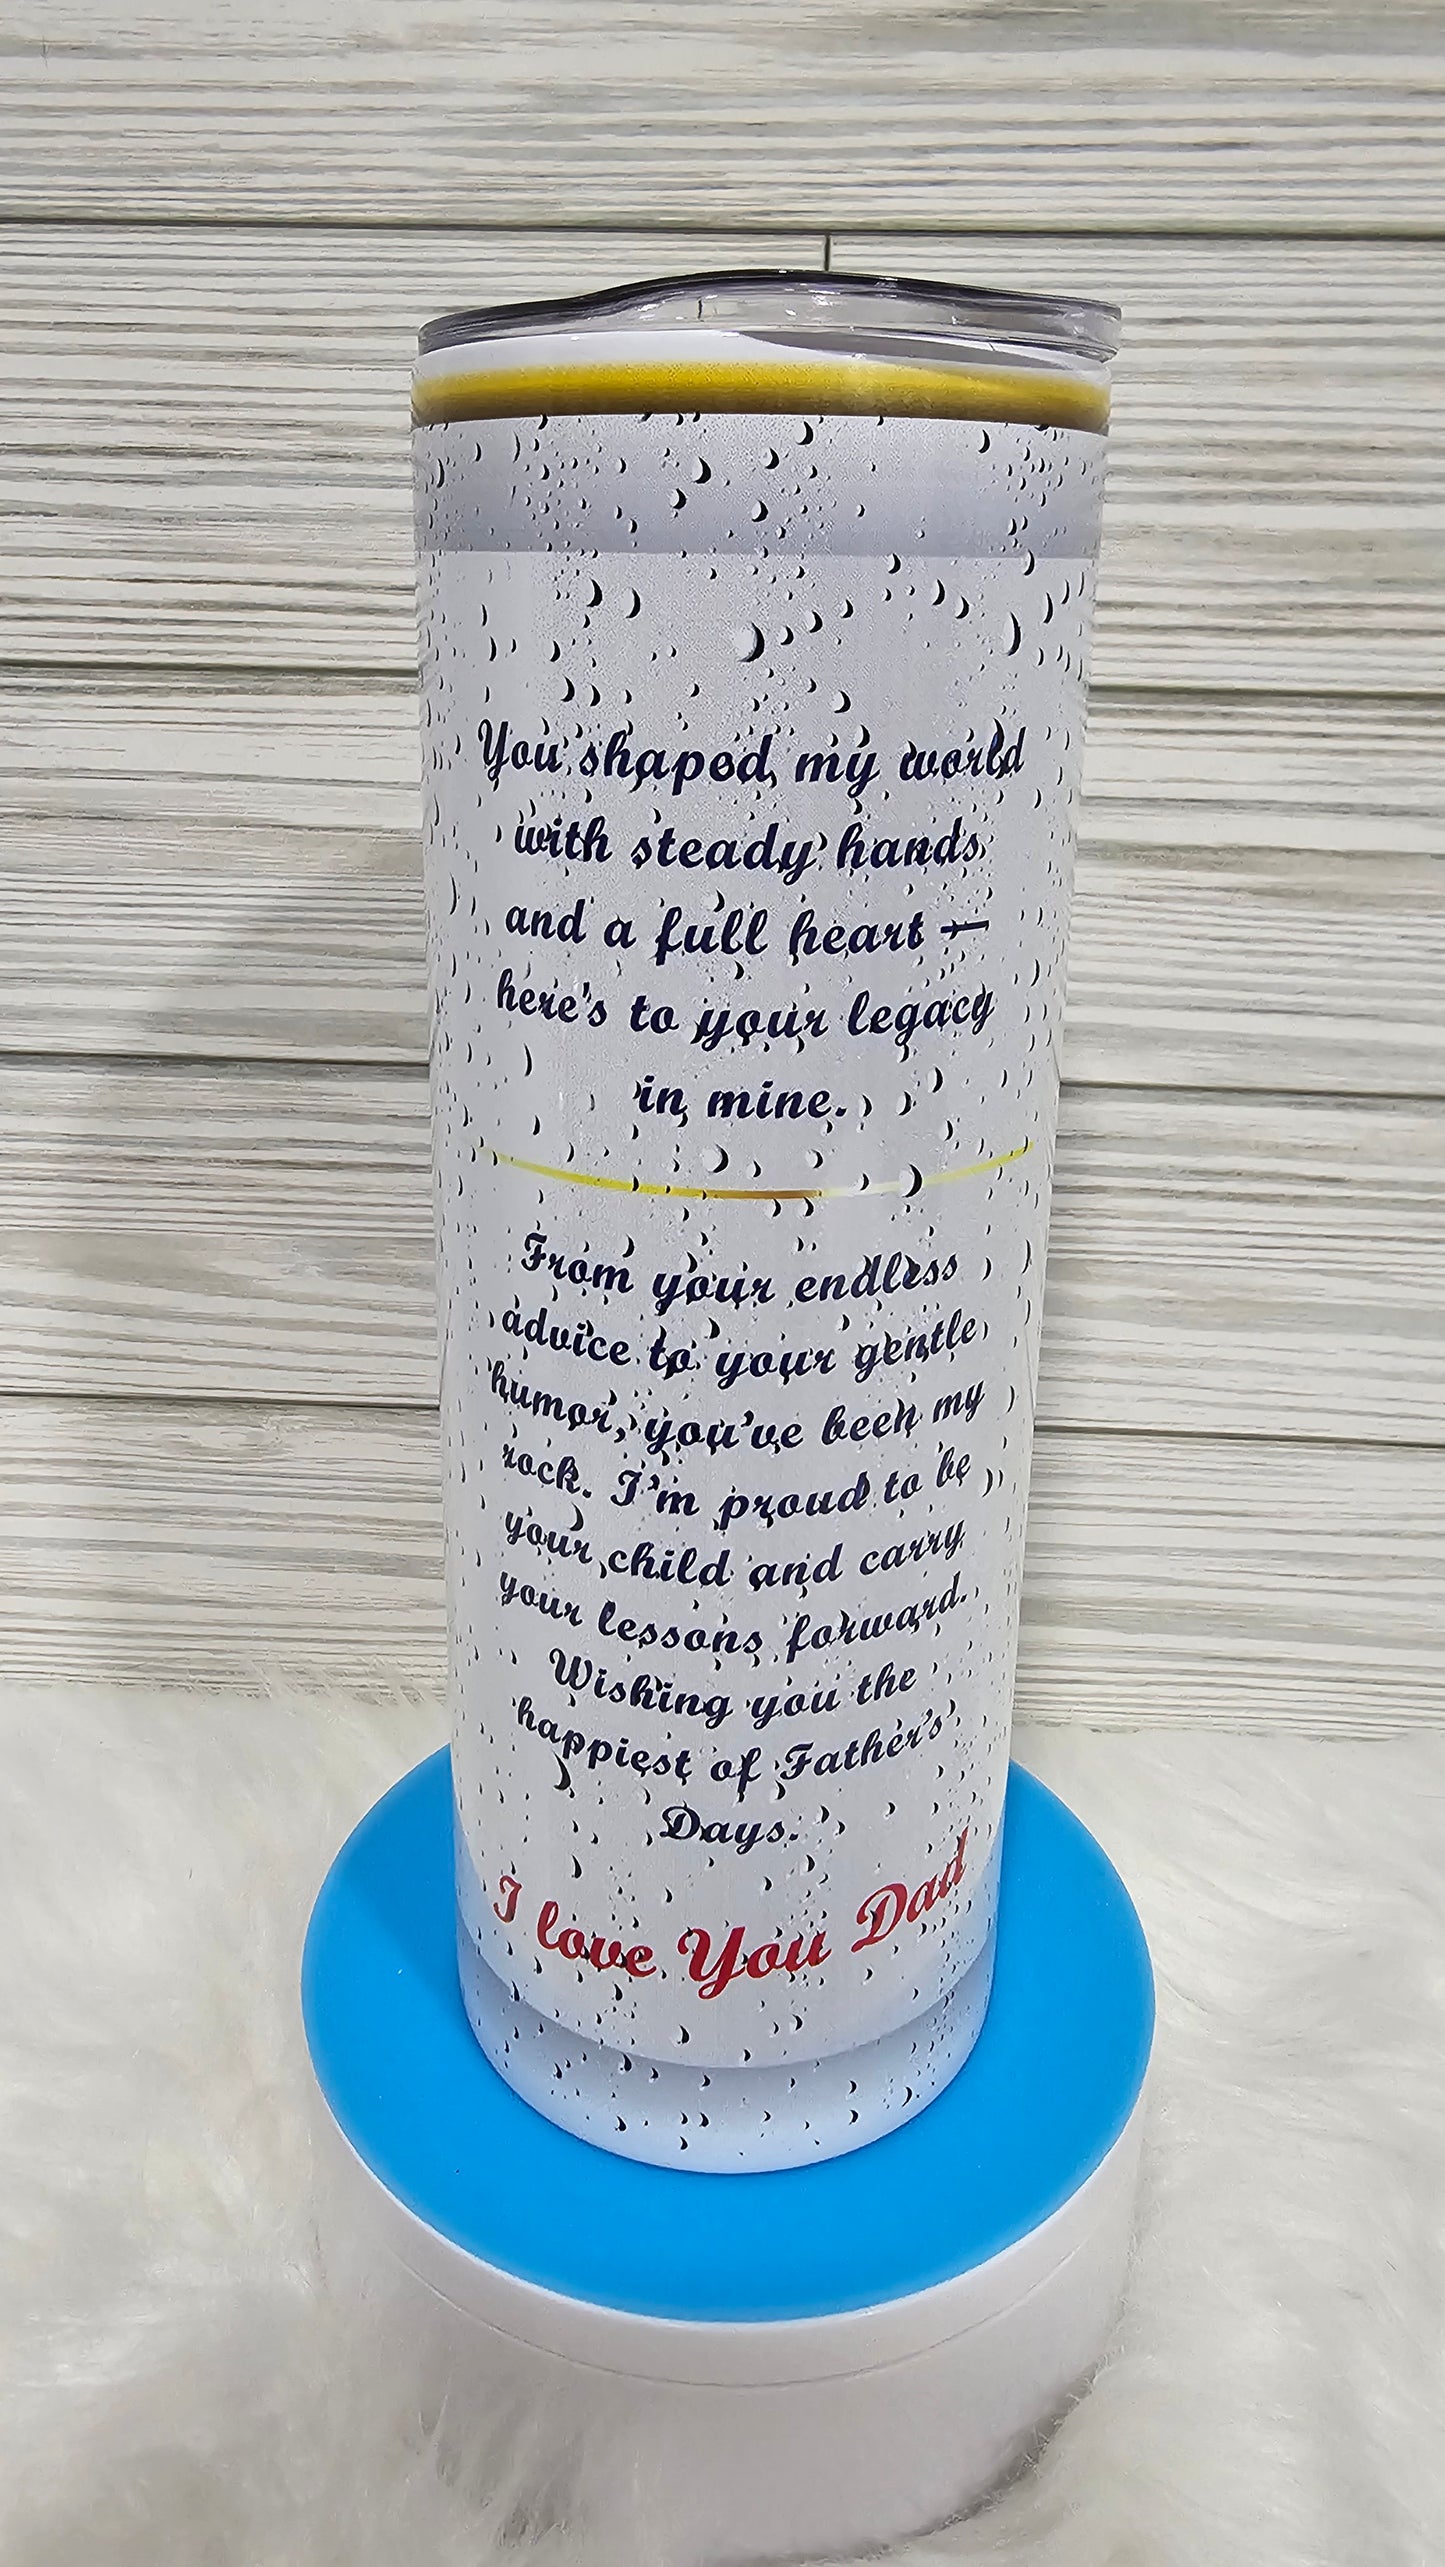 You shaped my world
with steady hands
and a full heart —
here's to your legacy
in mine.
From your endless
advice to your gentle
humor, you've been my
rock. I'm proud to be
your child and carry
your lessons forward.
Wishing you the
happiest of Father's
Days.
I love You Dad